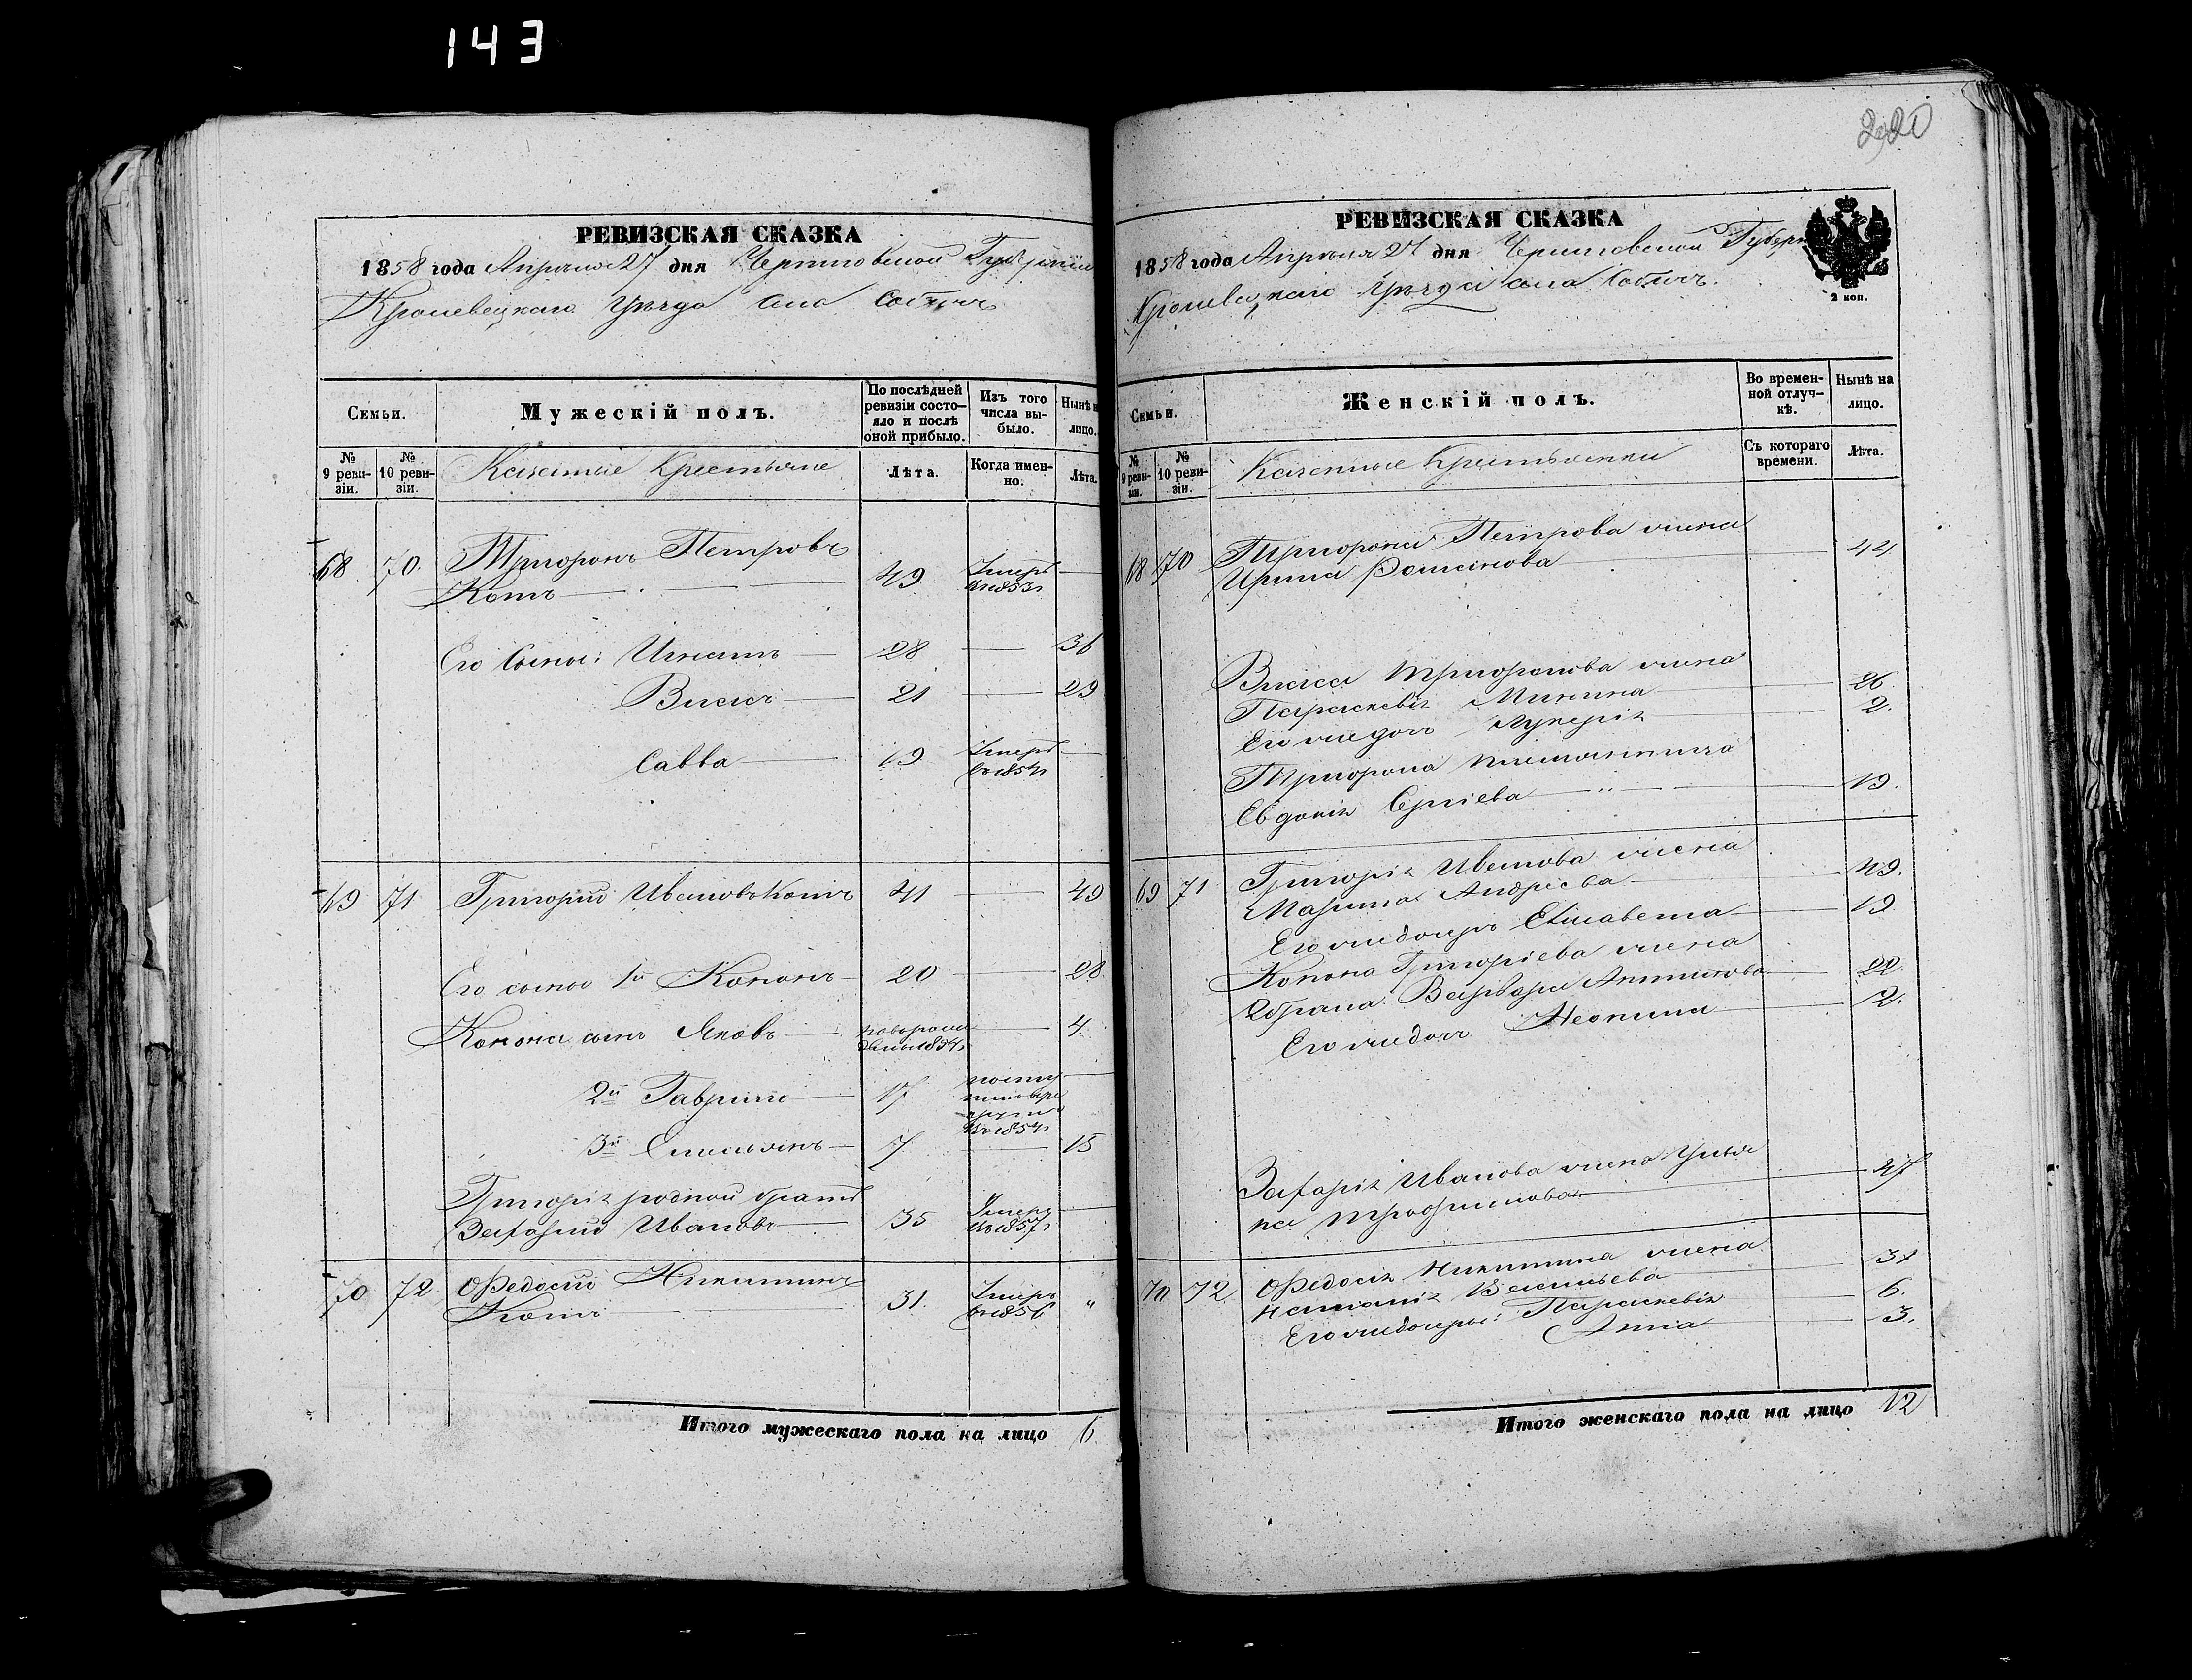 143
220
РЕВИЗСКАЯ СКАЗКА
1858 года Апреля 27 дня Черниговской Губерніи
Кролевецкаго Уѣзда села Собичъ
Семьи.
Мужескій полъ.
По послѣдней ревизіи состояло и послѣ оной прибыло.
Изъ того числа выбыло.
Нынѣ на лицо.
№ 9 ревизіи.
№ 10 ревизіи.
Казенные Крестьяне
Лѣта.
Когда именно.
Лѣта.
68 70 Трифонъ Петровъ
Котъ 49 Умеръ въ 1853
Его сыны: Игнатъ 28 36
Власъ 21 29
Савва 19 Умеръ въ 1854
69 71 Григорій Ивановъ Котъ 41 49
Его сыны 1й Кононъ 20 28
Конона сынъ Яковъ 1854 4
2й Гаврило 17 въ 1854
3й Емельянъ 7 15
Григорія родной братъ
Захарій Ивановъ 35 Умеръ въ 1857
70 72 Федосій Никитинъ
Котъ 31. Умеръ въ 1856 "
Итого мужескаго пола на лицо 6.
РЕВИЗСКАЯ СКАЗКА
1858 года Апреля 27 дня Черниговской Губерніи
Кролевецкаго Уѣзда села Собичъ.
2 коп.
Семьи.
Женскій полъ.
Во временной отлучкѣ.
Нынѣ на лицо.
№ 9 ревизіи.
№ 10 ревизіи.
Казенные Крестьянки
Съ котораго времени.
Лѣта.
68 70 Трифона Петрова жена
Ирина Романова 44
Власа Трифонова жена
Параскевія Минина 26.
Его же дочь Лукерія 2.
Трифона племянница
Евдокія Сергіева 19.
69 71 Григорія Иванова жена
Марина Андреева 49.
Его же дочерь Елисавета 19
Конона Григоріева жена
Варвара Антипова 22
Его же дочь 2.
Захарія Иванова жена Улья
на Трофимова 47
70 72 Федосія Никитина жена
Наталія Васильева 31
Его же дочеры: Параскевія 6.
Анна 3.
Итого женскаго пола на лицо 12